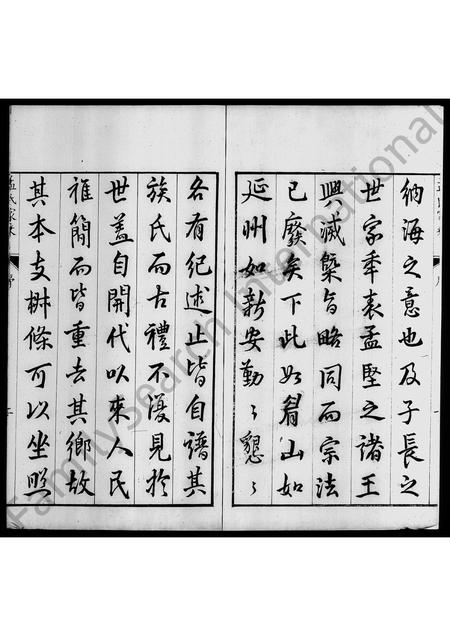 納海之意也及子長之
世家年表孟堅之諸王
興滅槩旨略同而宗法
已廢矣下此如眉山如
延州如新安勤〻懇〻
各有紀述止皆自譜其
族氏而古禮不復見於
世蓋自開代以來人民
雖簡而皆重去其鄉故
其本支樹條可以坐照
孟氏家乘
序
FamilySearch International